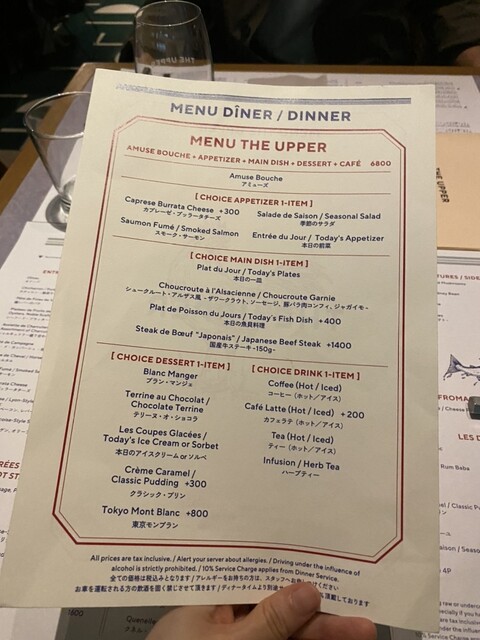 MENU DÎNER / DINNER
MENU THE UPPER
AMUSE BOUCHE + APPETIZER + MAIN DISH + DESSERT + CAFÉ 6800
Amuse Bouche
アミューズ
[ CHOICE APPETIZER 1-ITEM ]
Caprese Burrata Cheese +300
カプレーゼ・ブッラータチーズ
Salade de Saison / Seasonal Salad
季節のサラダ
Saumon Fumé / Smoked Salmon
スモーク・サーモン
Entrée du Jour / Today's Appetizer
本日の前菜
[ CHOICE MAIN DISH 1-ITEM ]
Plat du Jour / Today's Plates
本日の一皿
Choucroute à l'Alsacienne / Choucroute Garnie
シュークルート・アルザス風 - ザワークラウト、ソーセージ、豚バラ肉コンフィ、ジャガイモ -
Plat de Poisson du Jours / Today's Fish Dish +400
本日の魚貝料理
Steak de Bœuf "Japonais" / Japanese Beef Steak +1400
国産牛ステーキ -150g-
[ CHOICE DESSERT 1-ITEM ]
Blanc Manger
ブラン・マンジェ
Terrine au Chocolat /
Chocolate Terrine
テリーヌ・オ・ショコラ
Les Coupes Glacées /
Today's Ice Cream or Sorbet
本日のアイスクリーム or ソルベ
Crème Caramel /
Classic Pudding +300
クラシック・プリン
Tokyo Mont Blanc +800
東京モンブラン
[ CHOICE DRINK 1-ITEM ]
Coffee (Hot / Iced)
コーヒー（ホット／アイス）
Café Latte (Hot / Iced) +200
カフェラテ（ホット／アイス）
Tea (Hot / Iced)
ティー（ホット／アイス）
Infusion / Herb Tea
ハーブティー
All prices are tax inclusive. / Alert your server about allergies. / Driving under the influence of
alcohol is strictly prohibited. / 10% Service Charge applies from Dinner Service.
全ての価格は税込みとなります / アレルギーをお持ちの方は、スタッフへお申し
ください
お車を運転される方の飲酒を固く禁じさせて頂きます / ディナータイムより別途
%頂戴しております
THE UPPER
THE UPPER